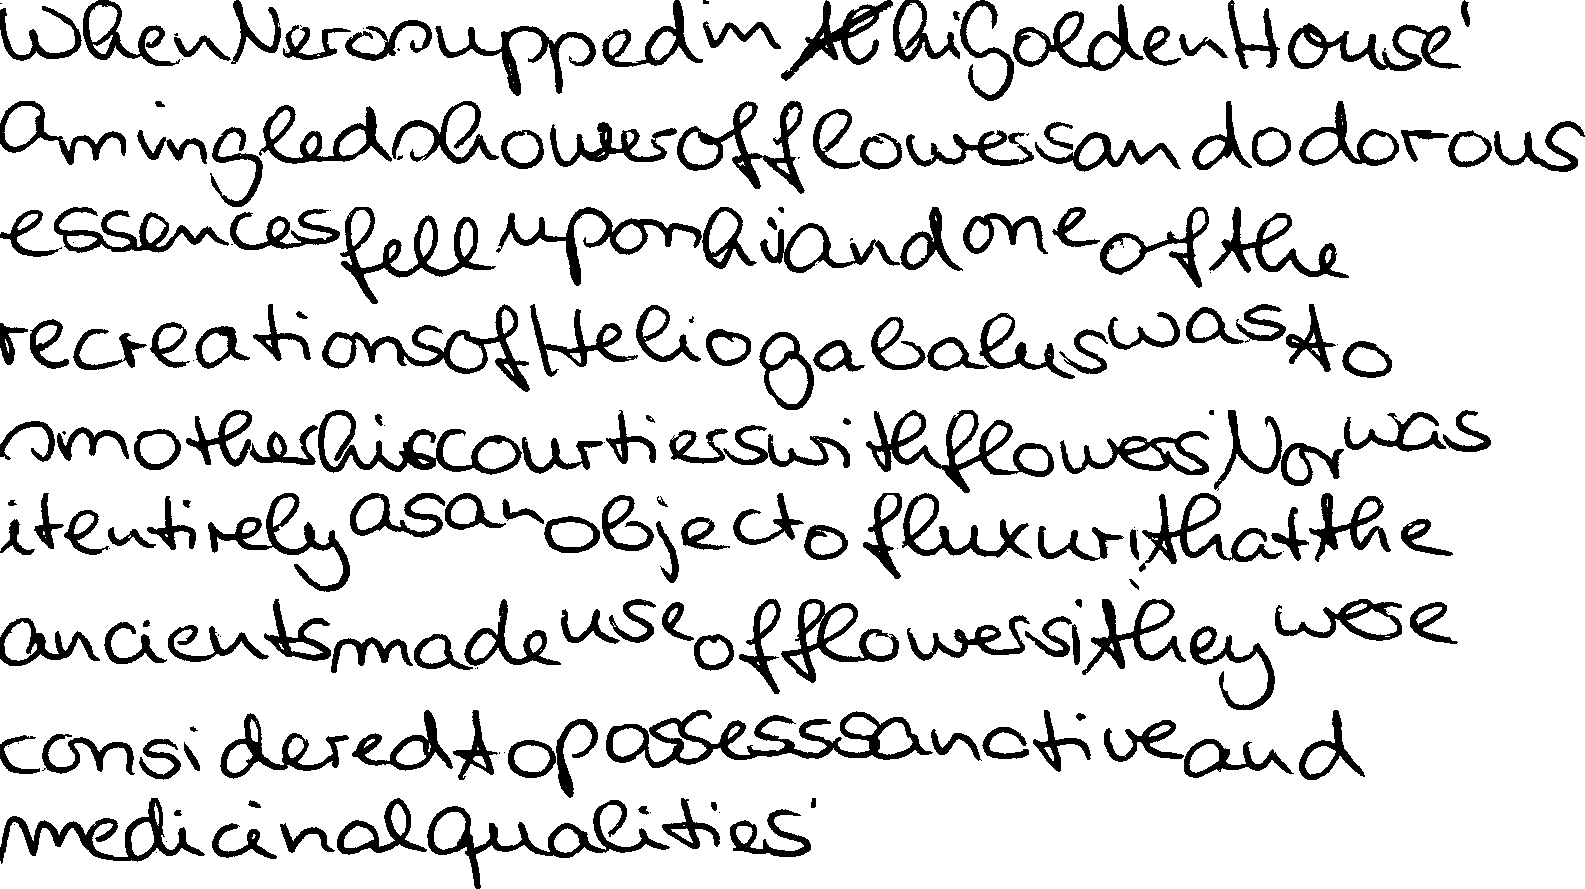 When Nero supped in the hi Golden House'
a mingled shower of flowers and odorous
essences fell upon hi and one of the
recreations of Heliogabalus was to
smother his courtiers with flowers, Nor was
it entirely as an object of luxuri, that the
ancients made use of flowers; they were
considered to possess sanctive and
medicinal qualities'